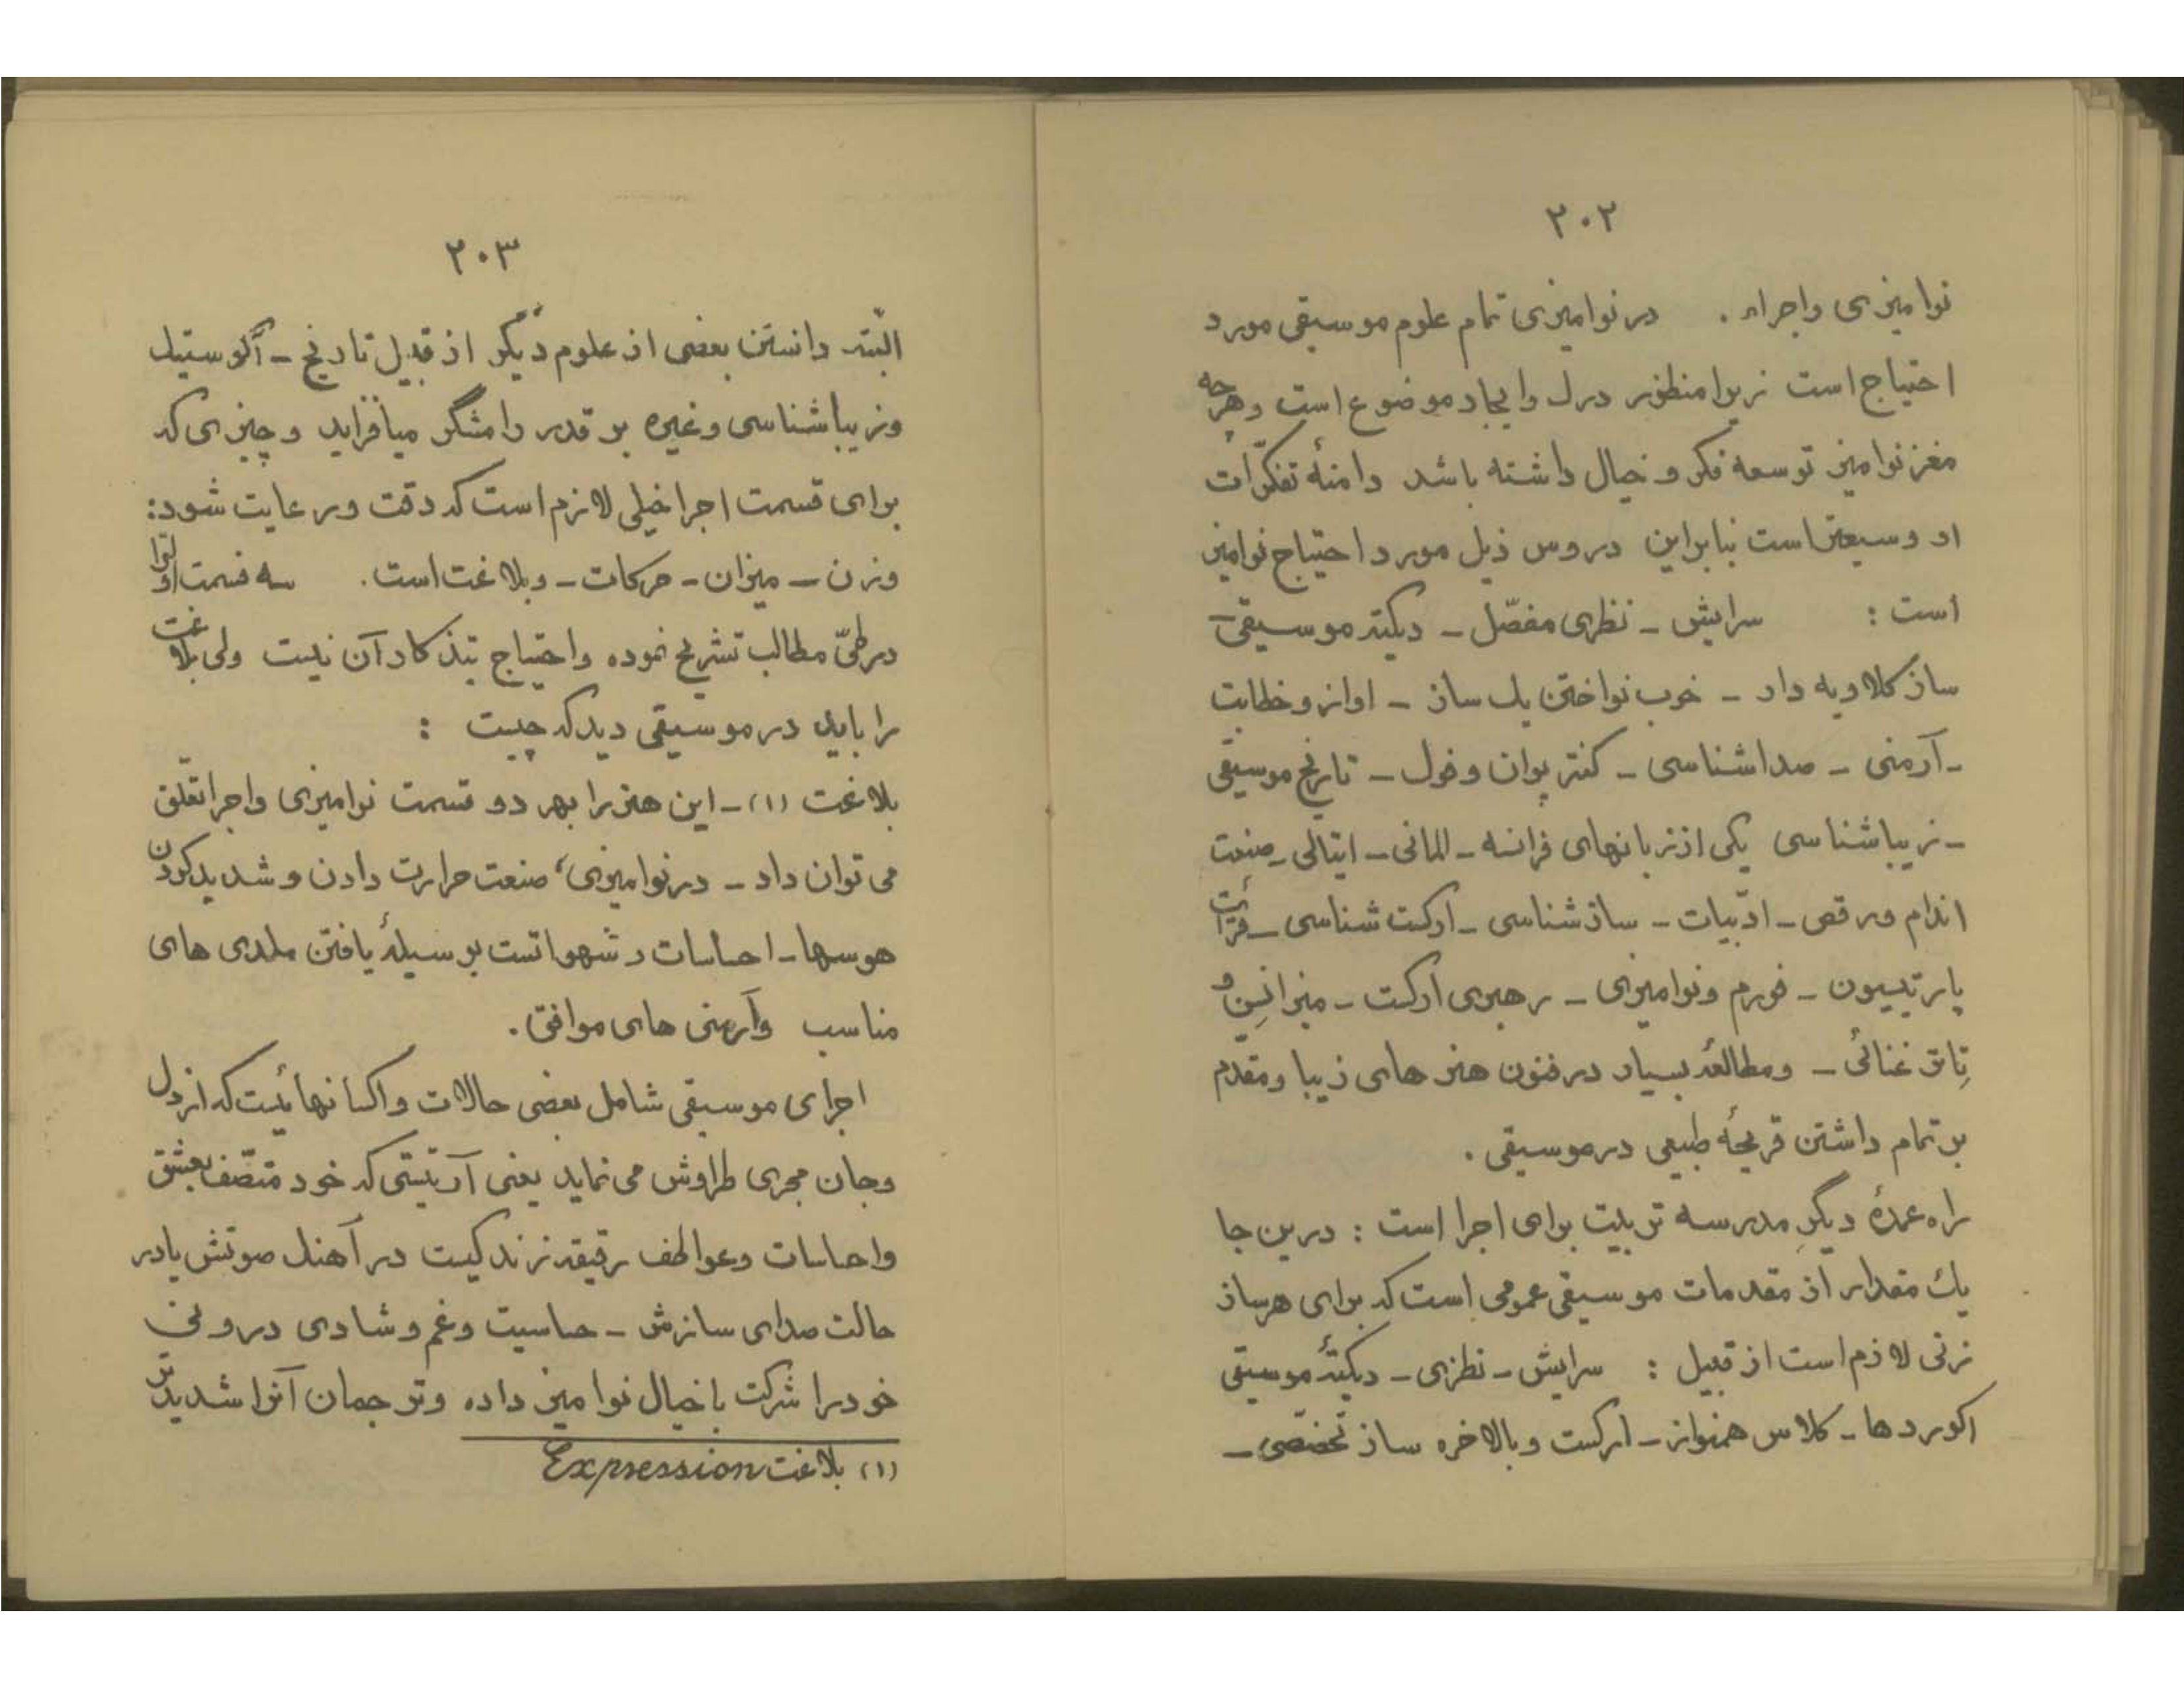 ۲۰۲
نوامیزی واجراء . در نوامیزی تمام علوم موسیقی مورد
احتیاج است زیرا منظور درک وایجاد موضوع است وهرچه
مغز نوامیز توسعه فکر و خیال داشته باشد دامنهٔ تفکّرات
او وسیعتر است بنابراین دروس ذیل مورد احتیاج نوامیز
است : سرایش ـ نظری مفصّل ـ دیکته موسیقی ـ
ساز کلاویه دار ـ خوب نواختن یک ساز ـ اواز و خطابت
ـ آرمنی ـ صداشناسی ـ کنترپوان وفول ـ تاریخ موسیقی
ـ زیباشناسی یکی از زبانهای فرانسه ـ المانی ـ ایتالی ـ صنعت
اندام ورقص ـ ادّبیات ـ سازشناسی ـ ارکست شناسی ـ قرائت
پارتیسیون ـ فورم ونوامیزی ـ رهبری ارکست ـ میزانسِن و
تِاتر غنائی ـ ومطالعهٔ بسیار در فنون هنرهای زیبا ومقدّم
بر تمام داشتن قریحهٔ طبیعی در موسیقی .
راه عمدهٔ دیگرِ مدرسه تربیت برای اجرا است : درین جا
یک مقدار از مقدمات موسیقی عمومی است که برای هرساز
زنی لازم است از قبیل : سرایش ـ نظری ـ دیکتهٔ موسیقی
اکوردها ـ کلاس همنواز ـ ارکست وبالاخره ساز تخصّصی ـ
۲۰۳
البتّه دانستن بعضی از علوم دیگر از قبیل تاریخ ـ آکوستیک
وزیباشناسی وغیره بر قدر رامشگر میافزاید و چیزی که
برای قسمت اجرا خیلی لازم است که دقت ورعایت شود:
وزن ـ میزان ـ حرکات ـ وبلاغت است. سه قسمت اوّل را
در طیّ مطالب تشریح نموده واحتیاج بتذکار آن نیست ولی بلاغت
را باید در موسیقی دید که چیست :
بلاغت (۱) ـ این هنر را بهر دو قسمت نوامیزی واجرا تعّلق
می توان داد ـ در نوامیزی، صنعت حرارت دادن و شدید کردن
هوسها ـ احساسات و شهواتست بوسیلهٔ یافتن ملدی های
مناسب وآرمنی های موافق.
اجرای موسیقی شامل بعضی حالات واکسانهائیست که از دل
وجان مجری طراوش می نماید یعنی آرتیستی که خود متصّف بعشق
واحساسات وعواطف رقیقه زندگیست در آهنگ صوتش یادر
حالت صدای سازش ـ حساسیت وغم وشادی درونی
خود را شرکت با خیال نوامیز داده وترجمان آنرا شدیدتر
(۱) بلاغت Expression